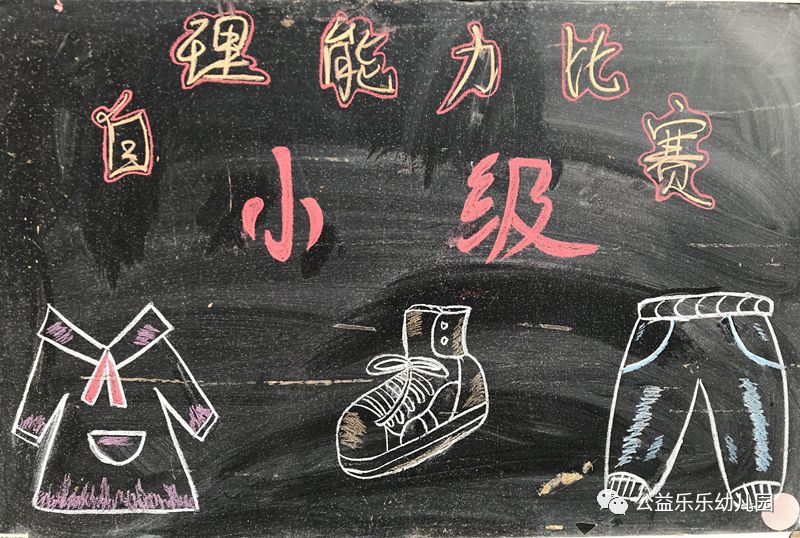 自理能力比赛
小级
公益乐乐幼儿园